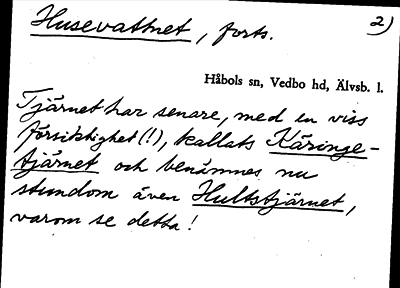 Husevattnet, forts.
2)
Håbols sn, Vedbo hd, Älvsb. l.
Tjärnet har senare, med en viss
försiktighet (!), kallats Käringe-
tjärnet och benämnes nu
stundom även Hultstjärnet,
varom se detta!